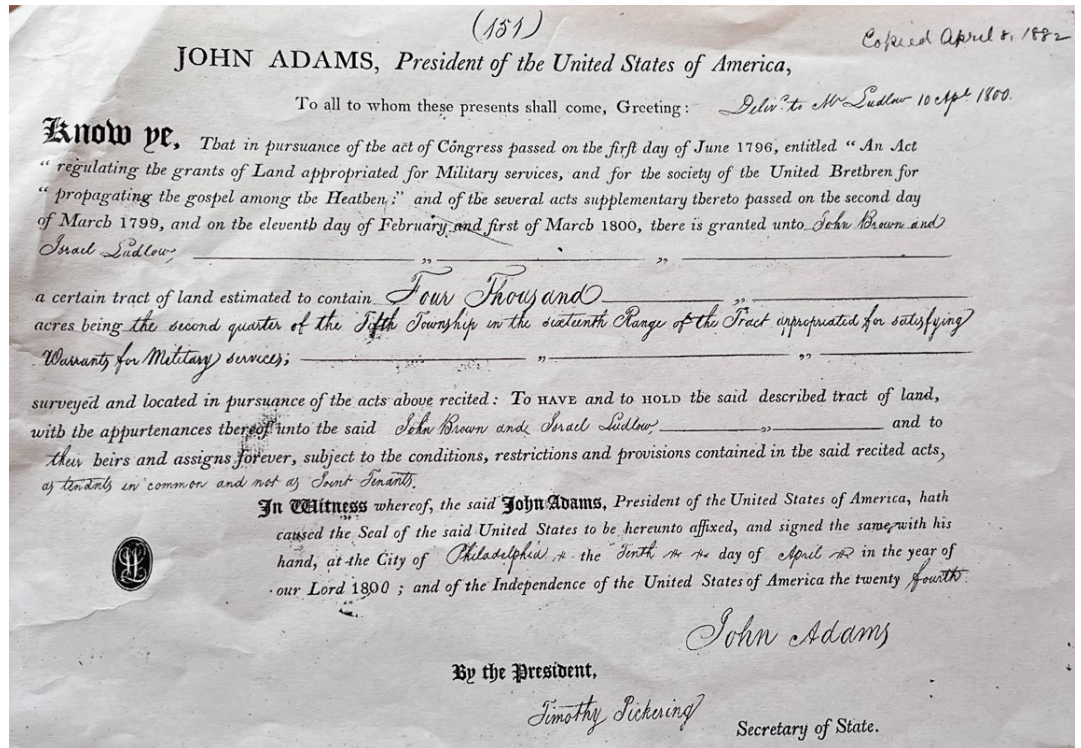 (151)
Copied April 8, 1882
JOHN ADAMS, President of the United States of America,
To all to whom these presents shall come, Greeting: Delivd. to Mr Ludlow 10 Apl. 1800.
Know ye, That in pursuance of the act of Congress passed on the first day of June 1796, entitled “ An Act
“ regulating the grants of Land appropriated for Military services, and for the society of the United Brethren for
“ propagating the gospel among the Heathen;” and of the several acts supplementary thereto passed on the second day
of March 1799, and on the eleventh day of February and first of March 1800, there is granted unto John Brown and
Israel Ludlow, „ „
a certain tract of land estimated to contain Four Thousand „
acres being the second quarter of the Fifth Township in the sixteenth Range of the Tract appropriated for satisfying
Warrants for Military services; „ „
surveyed and located in pursuance of the acts above recited: To HAVE and to HOLD the said described tract of land,
with the appurtenances thereof unto the said John Brown and Israel Ludlow, „ and to
their heirs and assigns forever, subject to the conditions, restrictions and provisions contained in the said recited acts,
as tenants in common and not as Joint Tenants.
In Witness whereof, the said John Adams, President of the United States of America, hath
caused the Seal of the said United States to be hereunto affixed, and signed the same with his
hand, at the City of Philadelphia the Tenth day of April in the year of
our Lord 1800 ; and of the Independence of the United States of America the twenty fourth.
John Adams
By the President,
Timothy Pickering
Secretary of State.